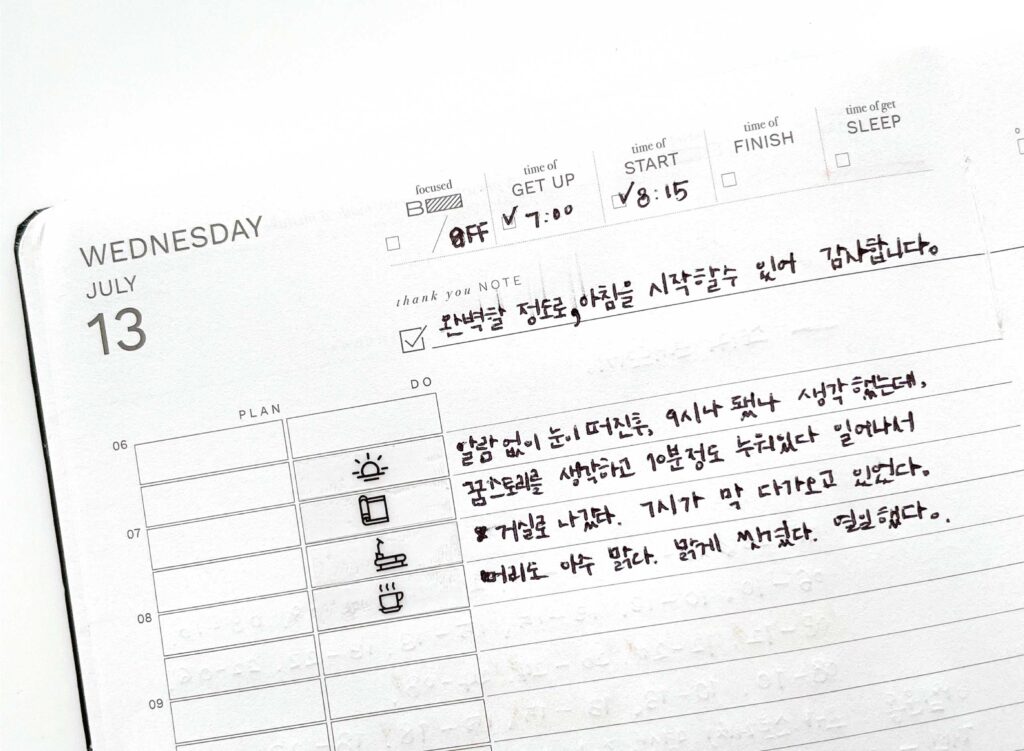 WEDNESDAY
JULY
13
focused
B
/ OFF
time of
GET UP
7:00
time of
START
8:15
time of
FINISH
time of get
SLEEP
thank you NOTE
완벽할 정도로, 아침을 시작할수 있어 감사합니다.
PLAN
DO
06
07
08
09
알람 없이 눈이 떠진후, 9시나 됐나 생각했는데,
꿈스토리를 생각하고 10분정도 누워있다 일어나서
거실로 나갔다. 7시가 막 다가오고 있었다.
머리도 아주 맑다. 맑게 씻겼다.